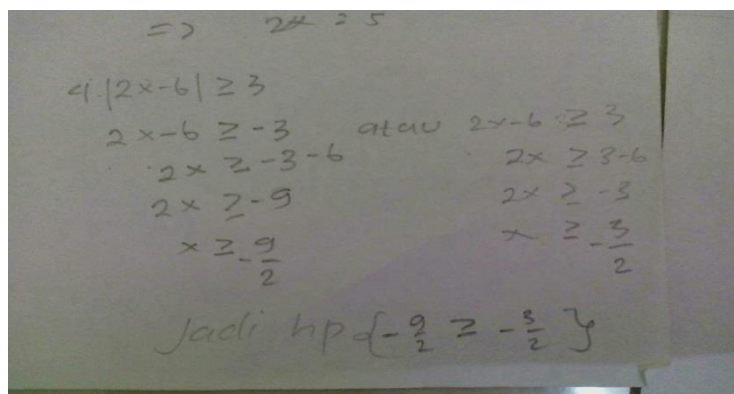 => 2x = 5
4. |2x-6| ≥ 3
2x-6 ≥ -3 atau 2x-6 ≥ 3
2x ≥ -3-6 2x ≥ 3-6
2x ≥ -9 2x ≥ -3
x ≥ -9/2 x ≥ -3/2
Jadi hp {-9/2 ≥ -3/2}